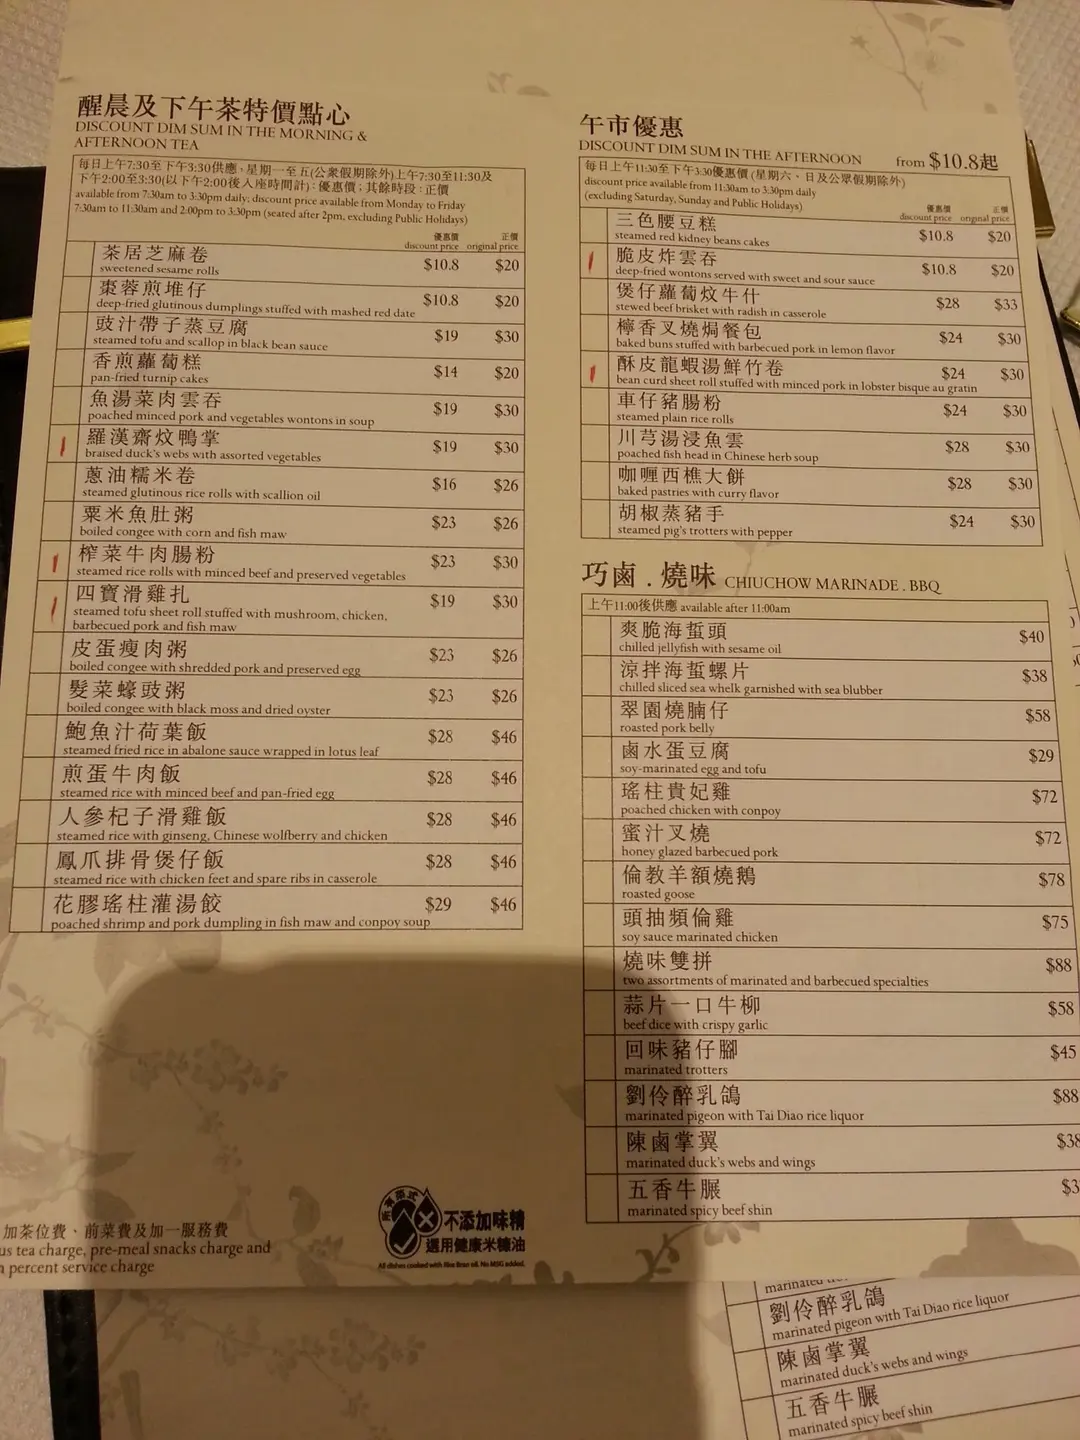 醒晨及下午茶特價點心
DISCOUNT DIM SUM IN THE MORNING &
AFTERNOON TEA
每日上午7:30至下午3:30供應，星期一至五(公衆假期除外)上午7:30至11:30及
下午2:00至3:30(以下午2:00後入座時間計)：優惠價；其餘時段：正價
available from 7:30am to 3:30pm daily; discount price available from Monday to Friday
7:30am to 11:30am and 2:00pm to 3:30pm (seated after 2pm, excluding Public Holidays)
優惠價 正價
discount price original price
茶居芝麻卷 $10.8 $20
sweetened sesame rolls
棗蓉煎堆仔 $10.8 $20
deep-fried glutinous dumplings stuffed with mashed red date
豉汁帶子蒸豆腐 $19 $30
steamed tofu and scallop in black bean sauce
香煎蘿蔔糕 $14 $20
pan-fried turnip cakes
魚湯菜肉雲吞 $19 $30
poached minced pork and vegetables wontons in soup
羅漢齋炆鴨掌 $19 $30
braised duck's webs with assorted vegetables
蔥油糯米卷 $16 $26
steamed glutinous rice rolls with scallion oil
粟米魚肚粥 $23 $26
boiled congee with corn and fish maw
榨菜牛肉腸粉 $23 $30
steamed rice rolls with minced beef and preserved vegetables
四寶滑雞扎 $19 $30
steamed tofu sheet roll stuffed with mushroom, chicken,
barbecued pork and fish maw
皮蛋瘦肉粥 $23 $26
boiled congee with shredded pork and preserved egg
髮菜蠔豉粥 $23 $26
boiled congee with black moss and dried oyster
鮑魚汁荷葉飯 $28 $46
steamed fried rice in abalone sauce wrapped in lotus leaf
煎蛋牛肉飯 $28 $46
steamed rice with minced beef and pan-fried egg
人參杞子滑雞飯 $28 $46
steamed rice with ginseng, Chinese wolfberry and chicken
鳳爪排骨煲仔飯 $28 $46
steamed rice with chicken feet and spare ribs in casserole
花膠瑤柱灌湯餃 $29 $46
poached shrimp and pork dumpling in fish maw and conpoy soup
加茶位費、前菜費及加一服務費
us tea charge, pre-meal snacks charge and
n percent service charge
所有菜式
不添加味精
選用健康米糠油
All dishes cooked with Rice Bran oil. No MSG added.
午市優惠
DISCOUNT DIM SUM IN THE AFTERNOON from $10.8起
每日上午11:30至下午3:30優惠價 (星期六、日及公眾假期除外)
discount price available from 11:30am to 3:30pm daily
(excluding Saturday, Sunday and Public Holidays)
優惠價 正價
discount price original price
三色腰豆糕 $10.8 $20
steamed red kidney beans cakes
脆皮炸雲吞 $10.8 $20
deep-fried wontons served with sweet and sour sauce
煲仔蘿蔔炆牛什 $28 $33
stewed beef brisket with radish in casserole
檸香叉燒焗餐包 $24 $30
baked buns stuffed with barbecued pork in lemon flavor
酥皮龍蝦湯鮮竹卷 $24 $30
bean curd sheet roll stuffed with minced pork in lobster bisque au gratin
車仔豬腸粉 $24 $30
steamed plain rice rolls
川芎湯浸魚雲 $28 $30
poached fish head in Chinese herb soup
咖喱西樵大餅 $28 $30
baked pastries with curry flavor
胡椒蒸豬手 $24 $30
steamed pig's trotters with pepper
巧鹵．燒味 CHIUCHOW MARINADE . BBQ
上午11:00後供應 available after 11:00am
爽脆海蜇頭 $40
chilled jellyfish with sesame oil
涼拌海蜇螺片 $38
chilled sliced sea whelk garnished with sea blubber
翠園燒腩仔 $58
roasted pork belly
鹵水蛋豆腐 $29
soy-marinated egg and tofu
瑤柱貴妃雞 $72
poached chicken with conpoy
蜜汁叉燒 $72
honey glazed barbecued pork
倫教羊額燒鵝 $78
roasted goose
頭抽頻倫雞 $75
soy sauce marinated chicken
燒味雙拼 $88
two assortments of marinated and barbecued specialties
蒜片一口牛柳 $58
beef dice with crispy garlic
回味豬仔腳 $45
marinated trotters
劉伶醉乳鴿 $88
marinated pigeon with Tai Diao rice liquor
陳鹵掌翼 $38
marinated duck's webs and wings
五香牛𦟌 $3
marinated spicy beef shin
劉伶醉乳鴿
marinated pigeon with Tai Diao rice liquor
陳鹵掌翼
marinated duck's webs and wings
五香牛𦟌
marinated spicy beef shin